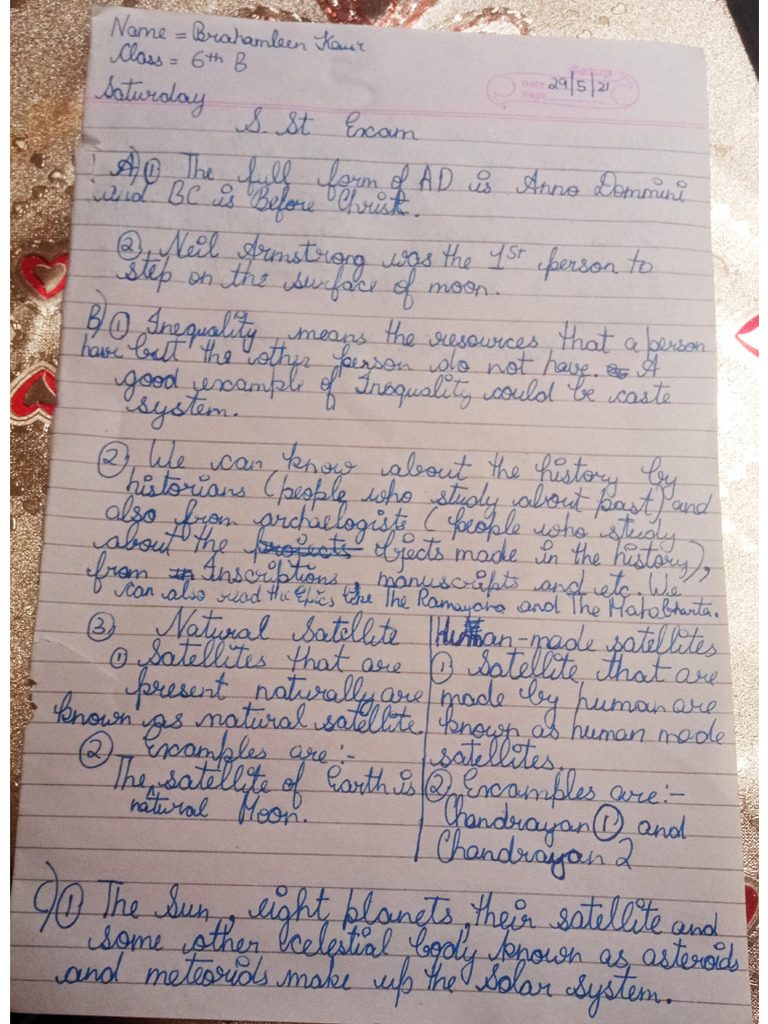 Name = Brahamleen Kaur
Class = 6th B
Saturday
Date 29/5/21
Page
S. St Exam
A) ① The full form of AD is Anno Dommini
and BC is Before Christ.
② Neil Armstrong was the 1st person to
step on the surface of moon.
B) ① Inequality means the resources that a person
have but the other person do not have. A
good example of Inequality could be caste
system.
② We can know about the history by
historians (people who study about past) and
also from archaelogists (people who study
about the projects objects made in the history),
from in Inscriptions, manuscripts and etc. We
can also read the Epics like The Ramayana and The Mahabharta.
③ Natural Satellite
① Satellites that are
present naturally are
known as natural satellite
② Examples are :-
The natural satellite of Earth is
Moon.
Human-made satellites
① Satellite that are
made by human are
known as human made
satellites.
② Examples are :-
Chandrayan ① and
Chandrayan 2
C) ① The Sun, eight planets, their satellite and
some other celestial body known as asteroids
and meteorids make up the Solar System.